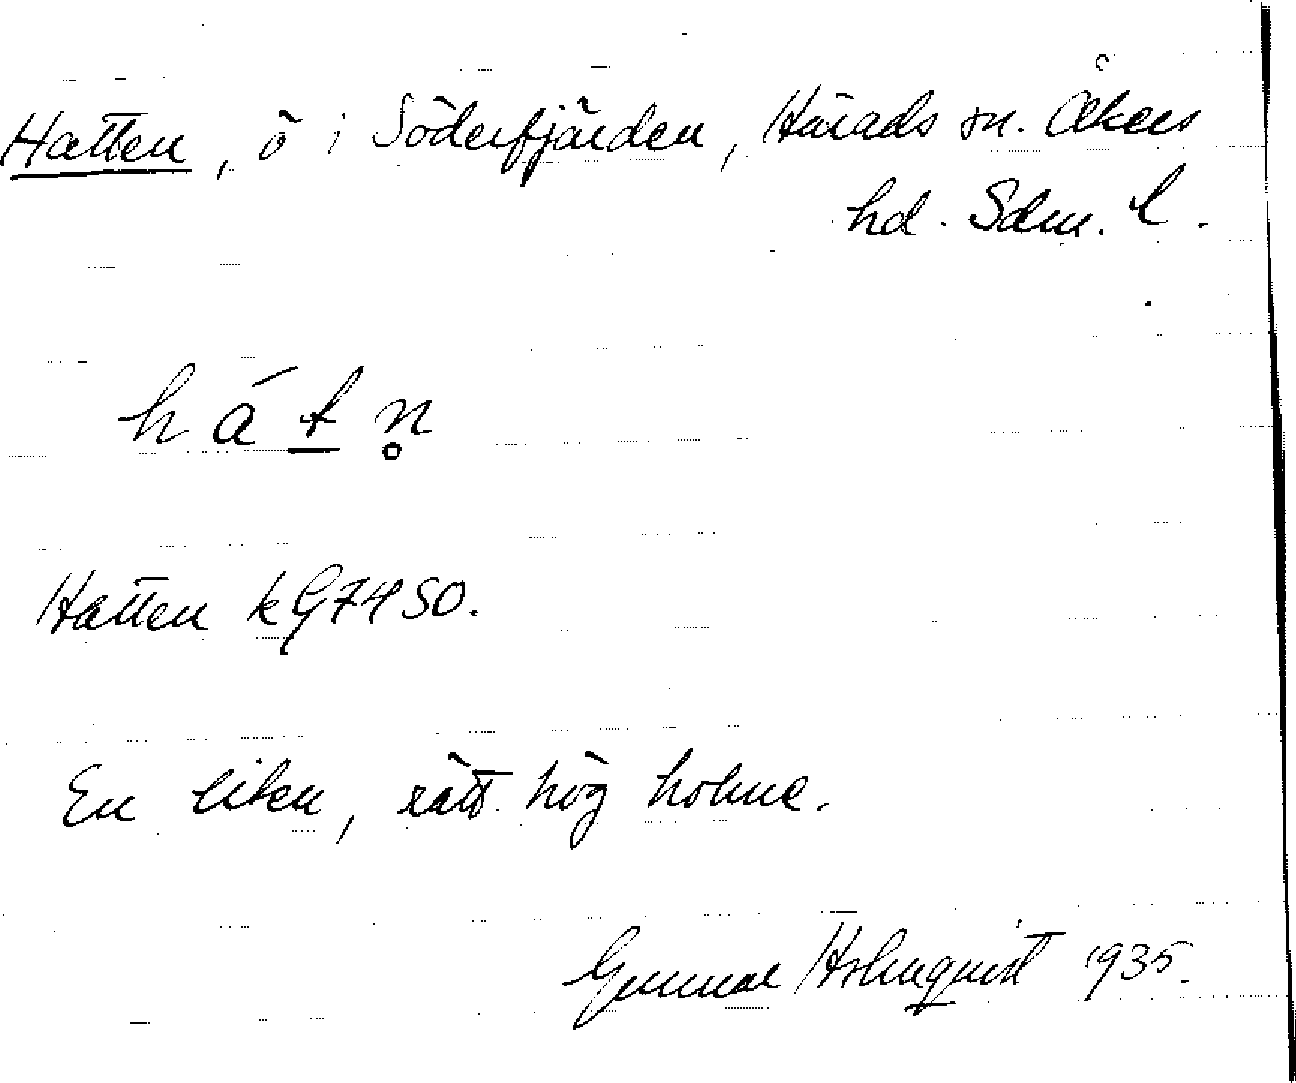 Hatten, ö i Söderfjärden, Härads sn. Åkers
hd. Sdm. l.
h á t n̥
Hatten k G74 SO.
En liten, rätt hög holme.
Gunnar Holmquist 1935.